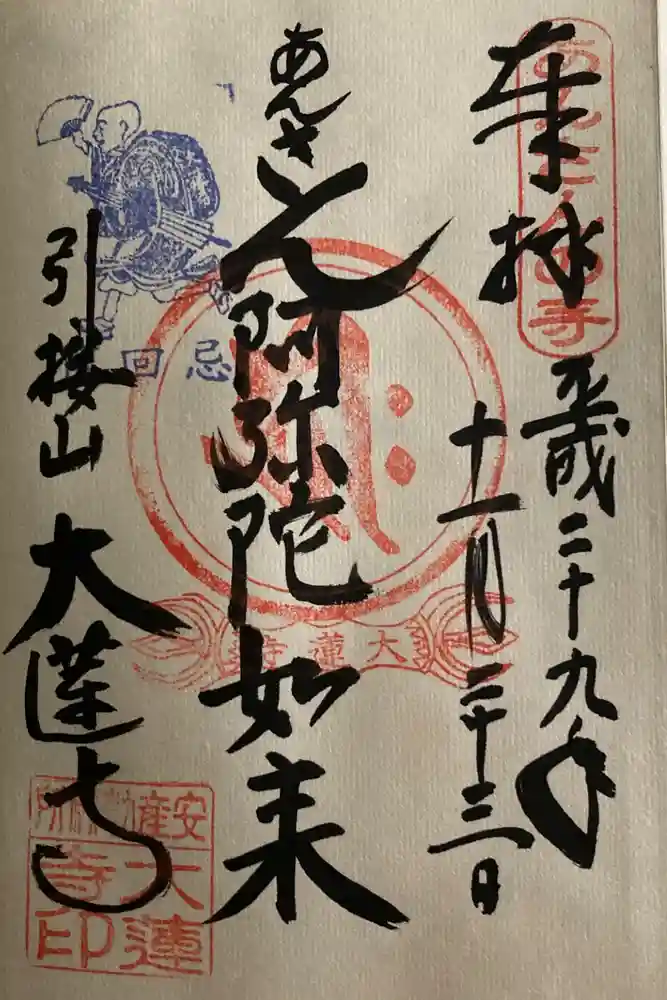 奉拝
あんさんの寺
平成二十九年
十一月二十三日
あんさん
阿弥陀如来
大蓮寺
回忌
引接山 大蓮寺
大蓮寺印